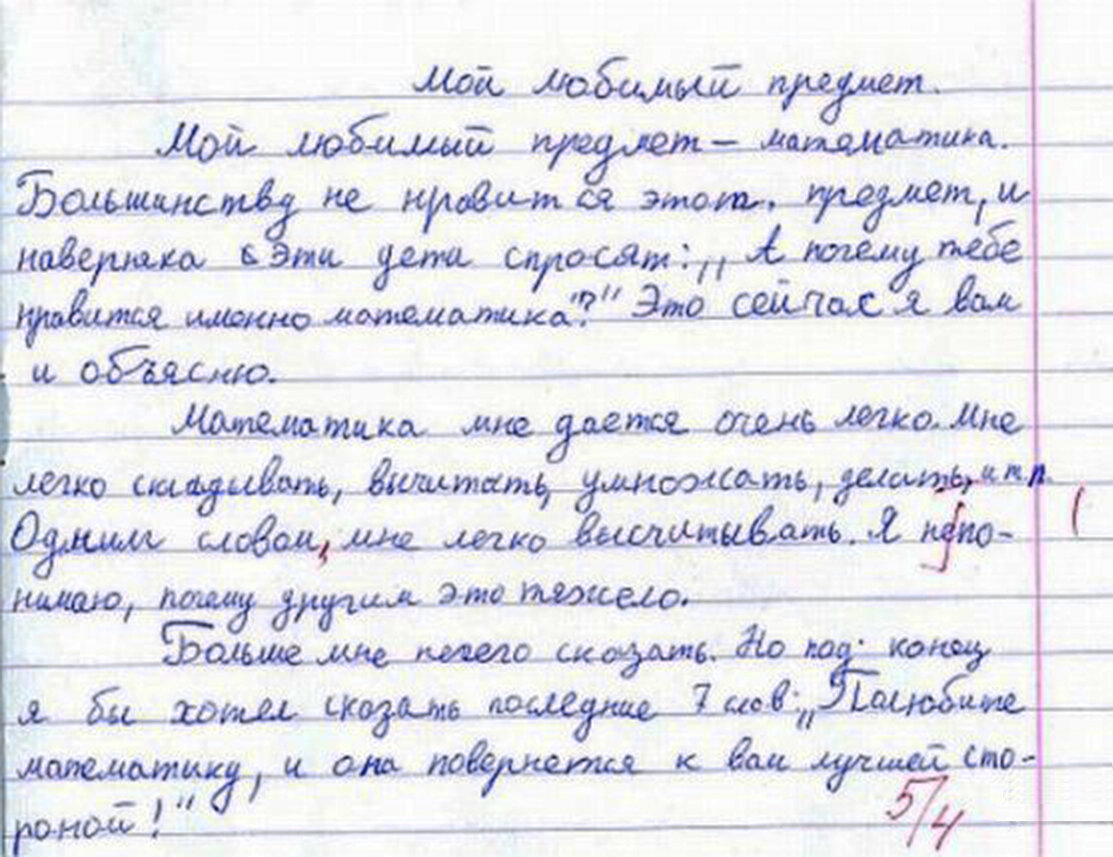 Мой любимый предмет.
Мой любимый предмет – математика.
Большинству не нравится этот. предмет, и
наверняка эти дети спросят: „А почему тебе
нравится именно математика?" Это сейчас я вам
и объясню.
Математика мне дается очень легко. Мне
легко складывать, вычитать, умножать, делить, и т.п.
Одним словом, мне легко высчитывать. Я непо-
нимаю, почему другим это тяжело.
Больше мне нечего сказать. Но под конец
я бы хотел сказать последние 7 слов: „Полюбите
математику, и она повернется к вам лучшей сто-
роной!"
5/4